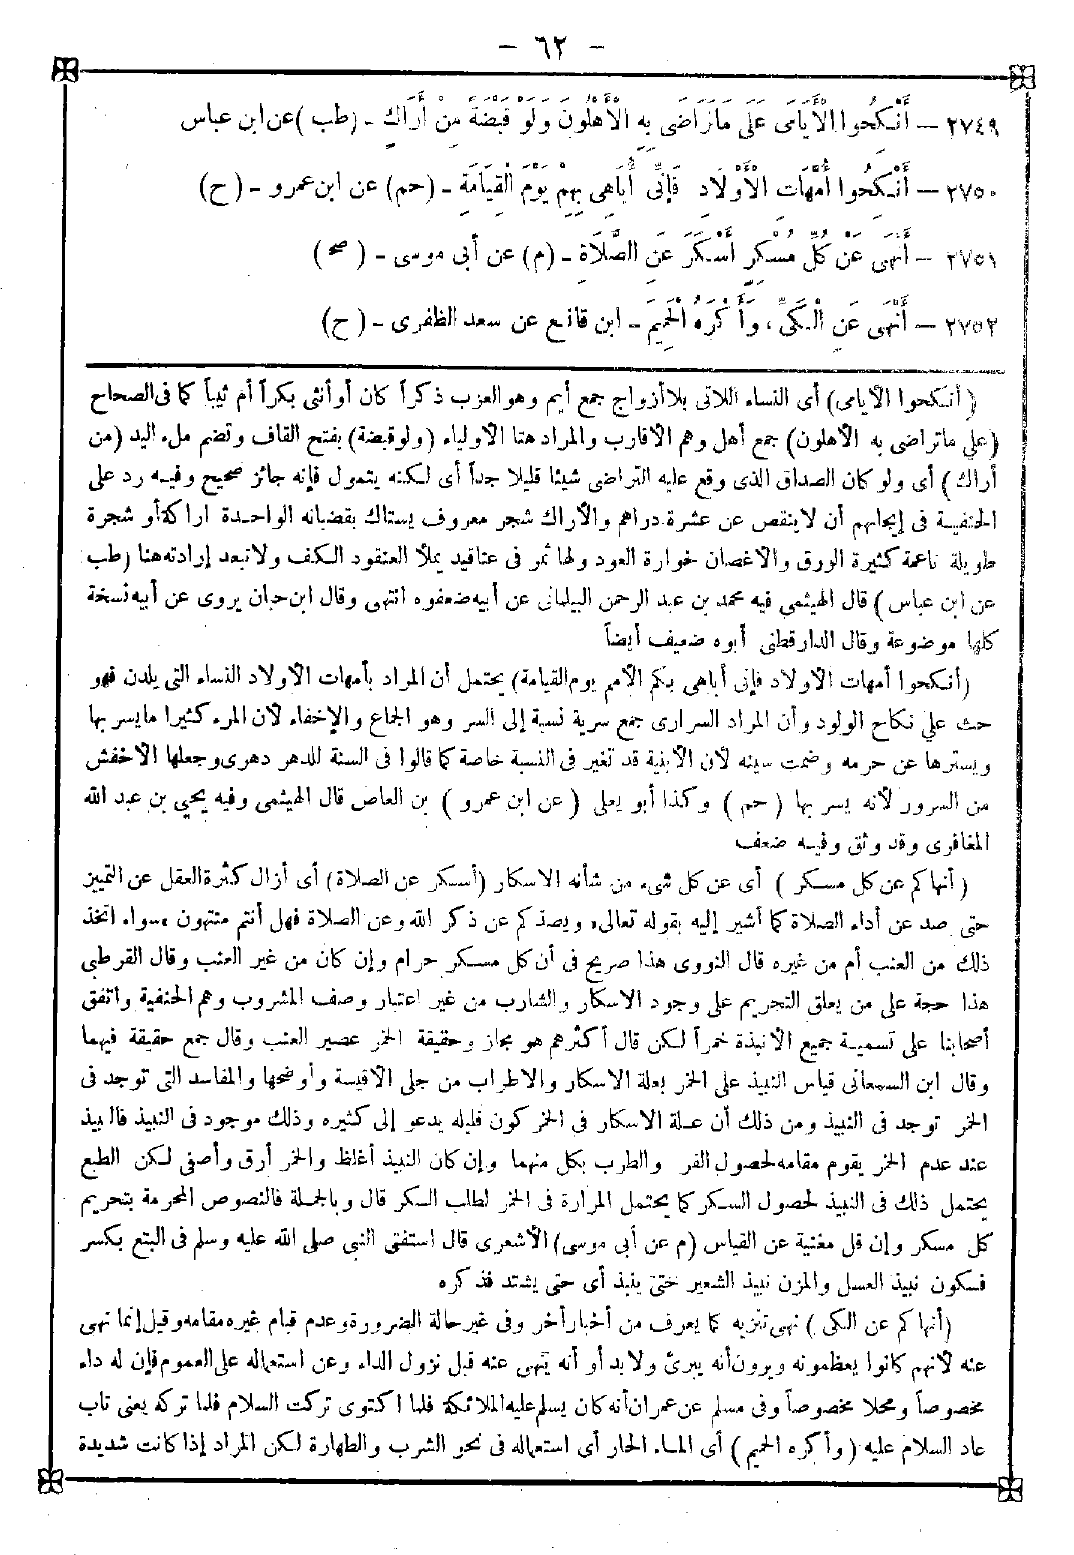 - ٦٢ -
٢٧٤٩ — أَنْكِحُوا الْأَيَامَى عَلَى مَا تَرَاضَى بِهِ الْأَهْلُونَ وَلَوْ قَبْضَةً مِنْ أَرَاكٍ - (طب) عن ابن عباس
٢٧٥٠ — أَنْكِحُوا أُمَّهَاتِ الْأَوْلَادِ فَإِنِّي أُبَاهِي بِهِمْ يَوْمَ الْقِيَامَةِ - (حم) عن ابن عمرو - (ح)
٢٧٥١ — أَنْهَى عَنْ كُلِّ مُسْكِرٍ أَسْكَرَ عَنِ الصَّلَاةِ - (م) عن أبى موسى - (صح)
٢٧٥٢ — أَنْهَى عَنِ الْكَيِّ، وَأَكْرَهُ الْحَمِيمَ - ابن قانع عن سعد الظفرى - (ح)
(أنكحوا الأيامى) أى النساء اللاتى بلا أزواج جمع أيم وهو العزب ذكراً كان أو أنثى بكراً أم ثيباً كما فى الصحاح
(على ما تراضى به الأهلون) جمع أهل وهم الأقارب والمراد هنا الأولياء (ولو قبضة) بفتح القاف وتضم ملء اليد (من
أراك) أى ولو كان الصداق الذى وقع عليه التراضى شيئا قليلا جداً أى لكنه يتمول فإنه جائز صحيح وفيه رد على
الحنفية فى إيجابهم أن لا ينقص عن عشرة دراهم والأراك شجر معروف يستاك بقضبانه الواحدة اراكة أو شجرة
طويلة ناعمة كثيرة الورق والاغصان خوارة العود ولها ثمر فى عناقيد يملأ العنقود الكف ولا تبعد إرادته هنا (طب
عن ابن عباس) قال الهيثمى فيه محمد بن عبد الرحمن البيلمانى عن أبيه ضعفوه انتهى وقال ابن حبان يروى عن أبيه نسخة
كلها موضوعة وقال الدارقطنى أبوه ضعيف أيضاً
(أنكحوا أمهات الاولاد فإنى أباهى بكم الأمم يوم القيامة) يحتمل أن المراد بأمهات الاولاد النساء التى يلدن فهو
حث على نكاح الولود وأن المراد السرارى جمع سرية نسبة إلى السر وهو الجماع والإخفاء لان المرء كثيرا ما يسر بها
ويسترها عن حرمه وضمت سينه لأن الأبنية قد تغير فى النسبة خاصة كما قالوا فى السنة للدهر دهرى وجعلها الأخفش
من السرور لأنه يسر بها (حم) وكذا أبو يعلى (عن ابن عمرو) بن العاص قال الهيثمى وفيه يحيى بن عبد الله
المغافرى وقد وثق وفيه ضعف
(أنهاكم عن كل مسكر) أى عن كل شىء من شأنه الاسكار (أسكر عن الصلاة) أى أزال كثرة العقل عن التمييز
حتى صد عن أداء الصلاة كما أشير إليه بقوله تعالى، ويصدكم عن ذكر الله وعن الصلاة فهل أنتم منتهون، سواء اتخذ
ذلك من العنب أم من غيره قال النووى هذا صريح فى أن كل مسكر حرام وإن كان من غير العنب وقال القرطبى
هذا حجة على من يعلق التحريم على وجود الاسكار والشارب من غير اعتبار وصف المشروب وهم الحنفية واتفق
أصحابنا على تسمية جميع الأنبذة خمراً لكن قال أكثرهم هو مجاز وحقيقة الخمر عصير العنب وقال جمع حقيقة فيهما
وقال ابن السمعانى قياس النبيذ على الخمر بعلة الاسكار والاطراب من جلى الاقيسة وأوضحها والمفاسد التى توجد فى
الخمر توجد فى النبيذ ومن ذلك أن علة الاسكار فى الخمر كون قليله يدعو إلى كثيره وذلك موجود فى النبيذ فالبيذ
عند عدم الخمر يقوم مقامه لحصول الفر والطرب بكل منهما وإن كان النبيذ أغلظ والخمر أرق وأصفى لكن الطبع
يحتمل ذلك فى النبيذ لحصول السكر كما يحتمل المرارة فى الخمر لطلب السكر قال وبالجملة فالنصوص المحرمة بتحريم
كل مسكر وإن قل مغنية عن القياس (م عن أبى موسى) الأشعرى قال استفتى النبى صلى الله عليه وسلم فى البتع بكسر
فسكون نبيذ العسل والمزن نبيذ الشعير حتى ينبذ أى حتى يشتد فذكره
(أنهاكم عن الكى) نهى تنزيه كما يعرف من أخبار أخر وفى غير حالة الضرورة وعدم قيام غيره مقامه وقيل إنما نهى
عنه لأنهم كانوا يعظمونه ويرون أنه يبرئ ولا بد أو أنه ينهى عنه قبل نزول الداء وعن استعماله على العموم فإن له داء
مخصوصاً ومحلا مخصوصاً وفى مسلم عن عمران أنه كان يسلم عليه الملائكة فلما اكتوى تركت السلام فلما تركه يعنى تاب
عاد السلام عليه (وأكره الحميم) أى الماء الحار أى استعماله فى نحو الشرب والطهارة لكن المراد إذا كانت شديدة